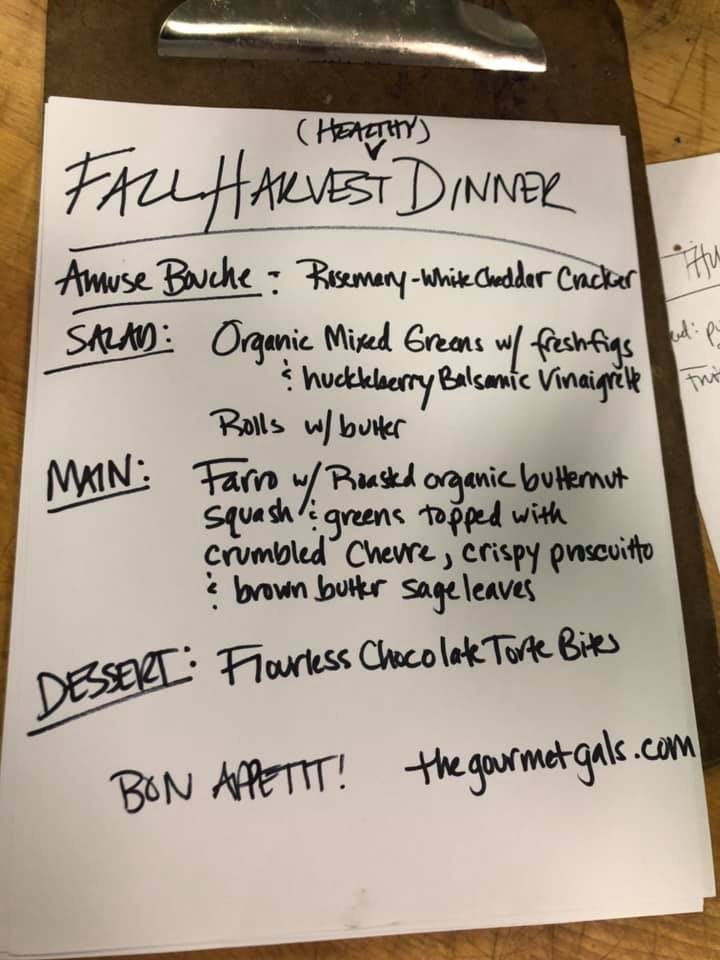 (HEALTHY)
FALL HARVEST DINNER
Amuse Bouche : Rosemary-White Cheddar Cracker
SALAD: Organic Mixed Greens w/ fresh figs
& huckleberry Balsamic Vinaigrette
Rolls w/ butter
MAIN: Farro w/ Roasted organic butternut
squash & greens topped with
crumbled Chevre, crispy proscuitto
& brown butter sage leaves
DESSERT: Flourless Chocolate Torte Bites
BON APPETIT! thegourmetgals.com